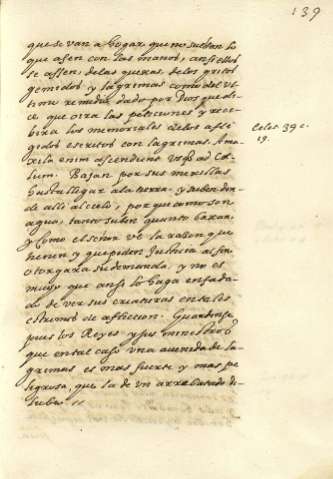 139
que se van a hogar que no sueltan lo
que asen con las manos, ansi ellos
se assen, de las quexas, de los gritos
gemidos y lagrimas como del ul
timo remedio dado por Dios que di
ce que oira las peticiones y rece
bira los memoriales de los afli
gidos escritos con lagrimas. A ma
xilla enim ascendunt usq ad Cæ
lum. Bajan por sus mexillas
hasta llegar a la tierra, y suben des
de alli al cielo, porque como son
agua, tanto suben quanto baxan.
y como el señor ve la razon que
tienen y que piden Justicia al fin
otorgara su demanda, y no es
mucho que ansi lo haga enfada
do de ver sus creaturas en tales
estremos de afliccion. Guardense
pues los Reyes y sus ministros
que en tal caso una avenida de la
grimas es mas fuerte y mas pe
ligrosa, que la de un arrebatado di
lubio
Ecles 35 c.
19.